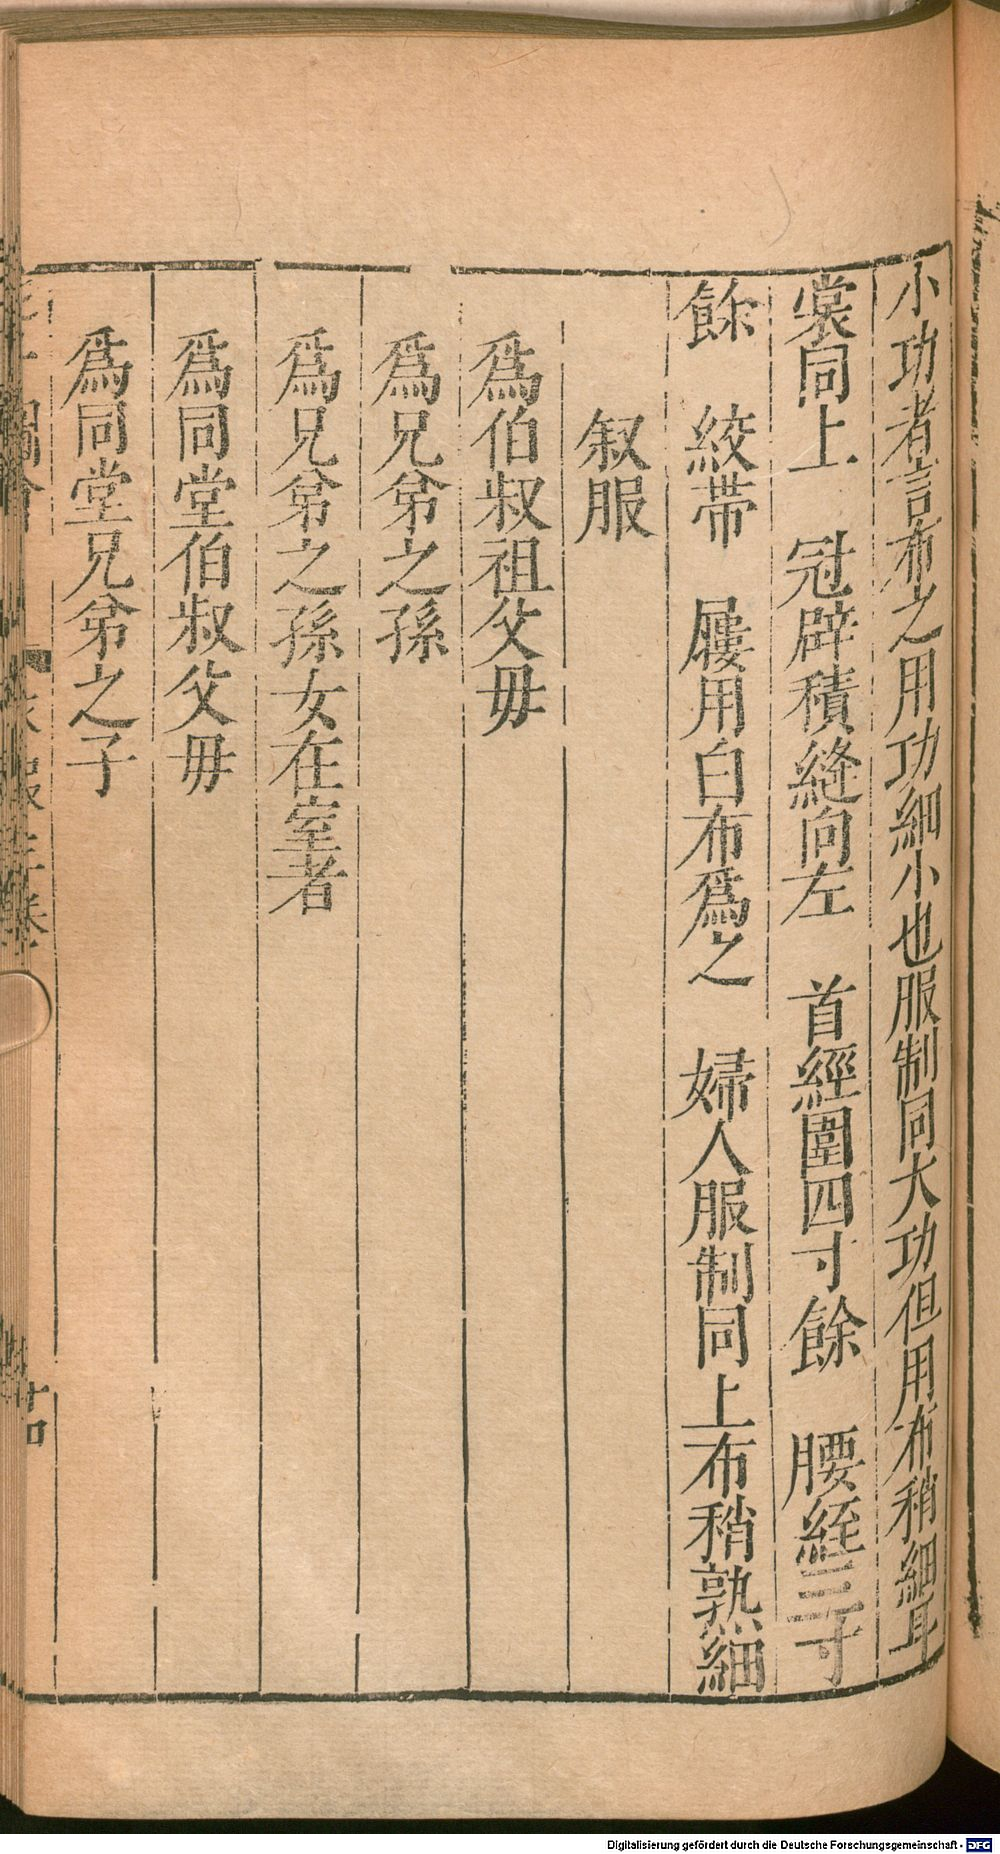 小功者言布之用功細小也服制同大功但用布稍細耳
裳同上　冠辟積縫向左　首經圍四寸餘　腰絰三寸
餘　絞帶　屨用白布爲之　婦人服制同上布稍熟細
叙服
爲伯叔祖父毋
爲兄弟之孫
爲兄弟之孫女在室者
爲同堂伯叔父毋
爲同堂兄弟之子
圖會　衣服三卷　十四
Digitalisierung gefördert durch die Deutsche Forschungsgemeinschaft - DFG